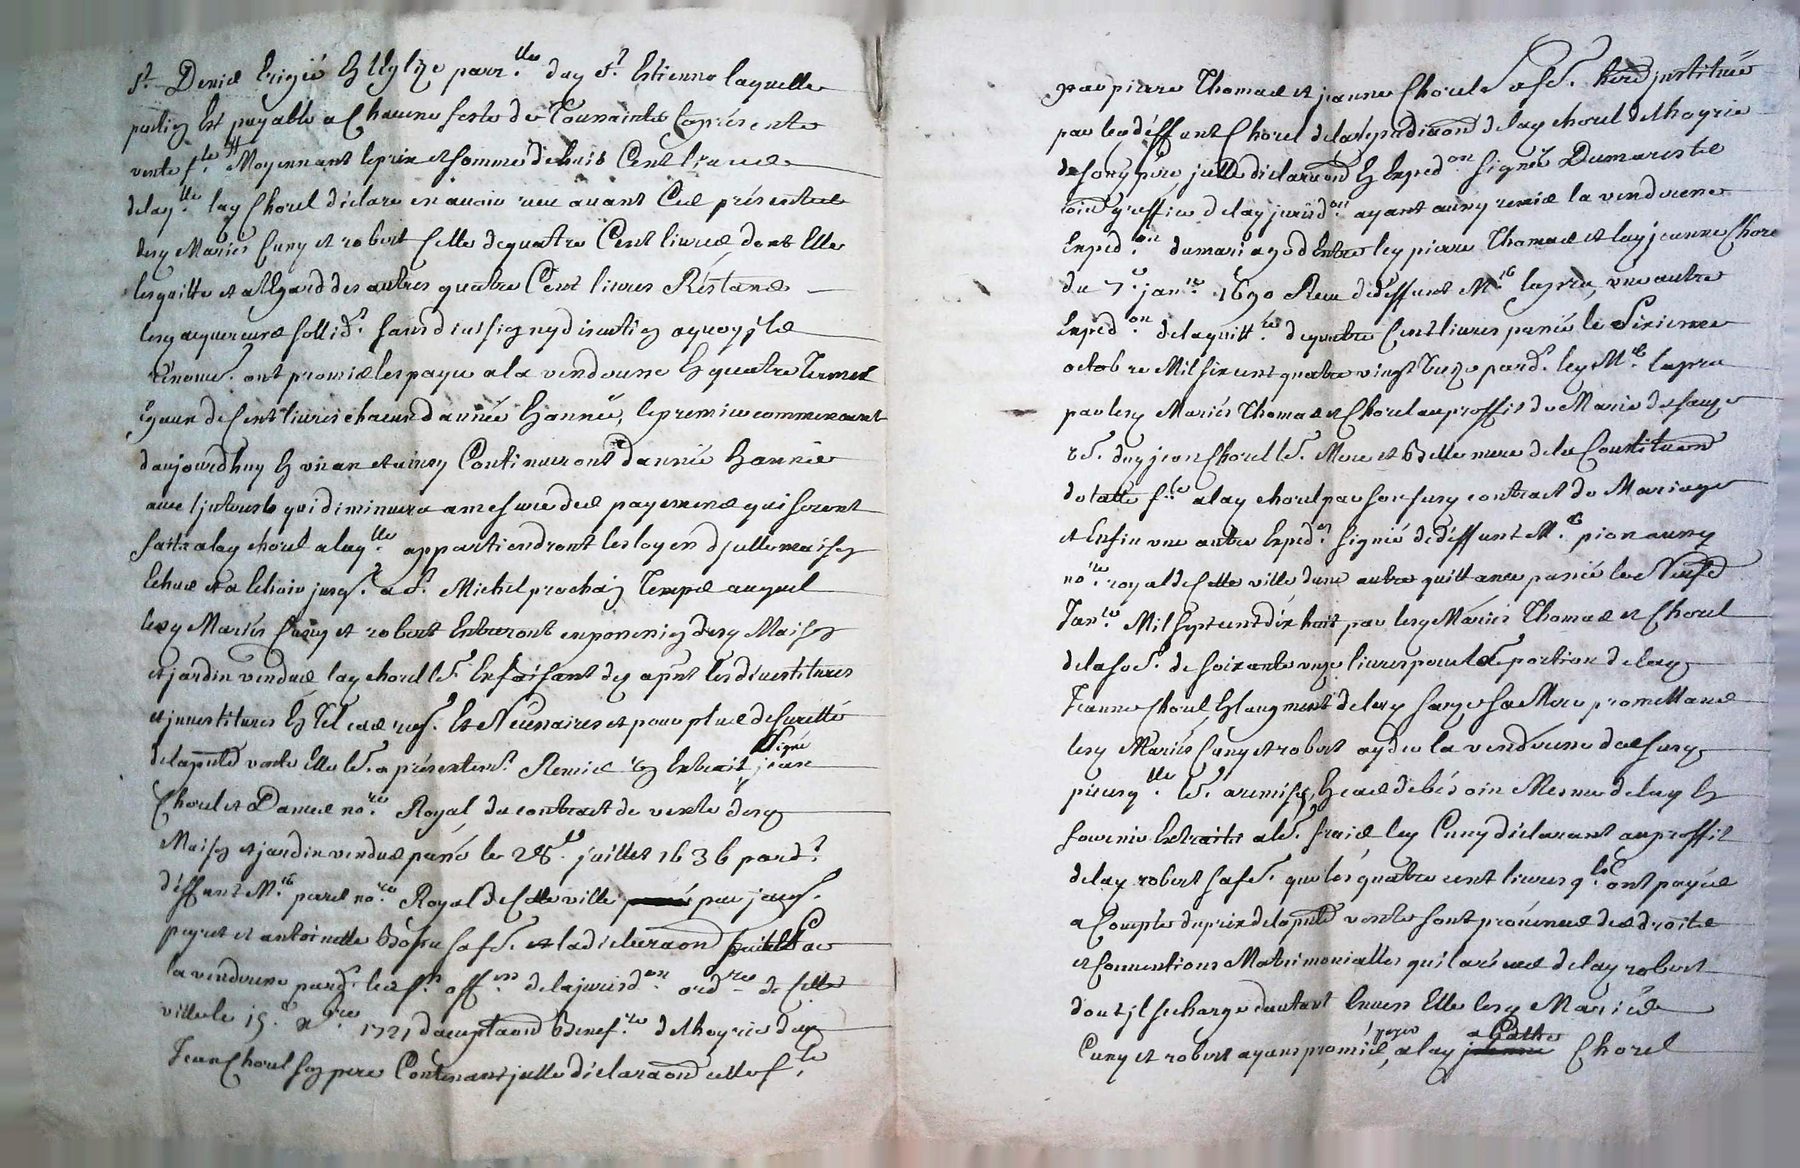 St. Denis Erigée En Eglize parr.lle dud St. Estienne laquelle
pention Est payable a Chacune feste de Toussaints la présente
vente f.te Moyennant le prix et somme de huit Cent livres
delaq.lle lad Chorel déclare en avoir reçu avant Ces présentes
desd Mariés Cuny et robert Celle de quatre Cent livres dont Elle
les quitte et a l'Egard des autres quatre Cent livres Réstans
lesd acquereurs sollid.t sans division ny discution a quoy ils
rénonc.t ont promis les payer a la venderesse En quatre Termes
Egaux de Cent livres chacun d'année En année, le premier commencant
d'aujourdhuy En un an et ainsy Continueront d'année En année
avec l'interests qui diminuera a mesure des payemens qui seront
faits a lad chorel a laq.lle appartiendront les loyers d'jcelle maison
Echus et a Echoir jusq.s a St. Michel prochain Temps auquel
lesd Mariés Cuny et robert Entreront en poss.ion desd Maison
et jardin vendus lad chorel s.t En faisant dez apnt les dévestitures
et jnvestitures En Tel cas req.s Et Necessaires et pour plus de sureté
de la pnte vente Elle s.t a présentem.t Remis Un Extrait Signé jean
Chorel et Damas no.re Royal du contract de vente desd
Maison et jardin vendus passé le 28.e juillet 1636 pard.t
déffunt M.re no.re Royal de Cette ville par jacq.s
peyret et antoinette sa fe. et la déclaraon faitte Par
la venderesse pard.t les s.rs off.ers de la jurisd.on ord.re de Cette
ville le 15.e x.bre 1721 d'acceptaon Benef.re de l'hoyrie dud
Jean Chorel son pere Contenant jcelle déclaraon cette f.te
par pierre Thomas et jeanne Chorel sa fe. hered jnstituée
par led déffunt Chorel de la répudiaon de lad chorel de l'hoyrie
de sond pere jcelle déclaraon En Exped.on Signée Dumarest
greffier de lad jurisd.on ayant aussy remis la venderesse
Exped.on du mariage d'Entre led pierre Thomas et lad jeanne Chorel
du 7.e jan.er 1690 Reçu de déffunt M.re laspra, une autre
Exped.on de la quitt.ce de quatre Cent livres passée le Sixieme
octobre Mil six cent quatre vingt Treize pard.t led M.re laspra
par lesd Mariés Thomas et Chorel au proffit de Marie de sauge
ve. dud jean Chorel s.t Mere et Belle mere de la Constituaon
dotalle f.te a lad chorel par son susd contract de Mariage
et Enfin une autre Exped.on signée de déffunt M.re pion aussy
no.re royal de Cette ville d'une autre quittance passée le Neuf
Jan.er Mil sept cent dix huit par lesd Mariés Thomas et Chorel
de la so.e de soixante onze livres pour la portion de lad
Jeanne Chorel En l'augment de lad sauge sa Mere promettans
lesd Mariés Cuny et robert ayder la venderesse des susd
pieces q.lle s.t a remises En cas de bésoin Mesme de lad En
souvenir Extraits a s.s fraix, led Cuny déclarant au proffit
de lad robert sa fe. que les quatre cent livres q.lles ont payés
a Compte du prix de la pnte vente sont provenus des droits
et conventions Matrimonialles qu'il a réçus de lad robert
dont jl se charge d'autant Envers Elle lesd Mariés
Cuny et robert ayans promis, payer a lad Cathe Chorel